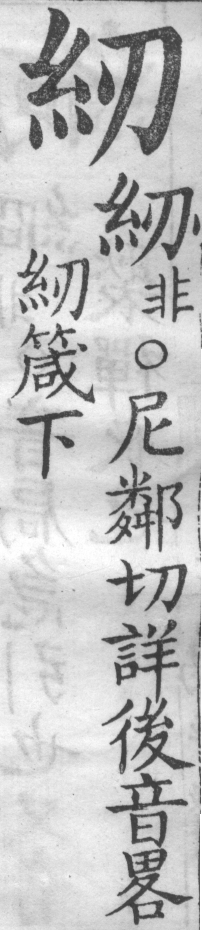 紉
紉非○尼鄰切詳後音畧
紉箴下